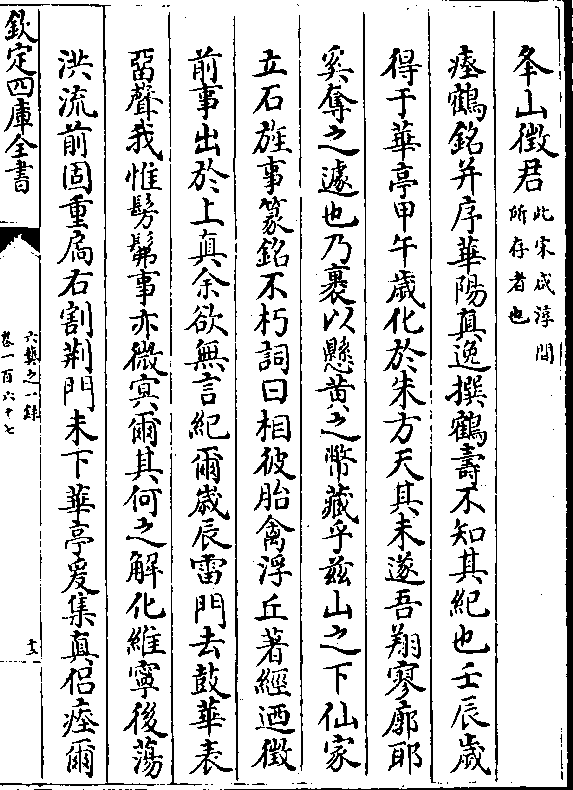 夅山徴君此宋咸淳間
所存者也
瘞鶴銘并序華陽真逸撰鶴壽不知其紀也壬辰歳
得于華亭甲午歳化於朱方天其未遂吾翔寥廓耶
奚奪之遽也乃裹以懸黄之幣藏乎兹山之下仙家
立石旌事篆銘不朽詞曰相彼胎禽浮丘著經迺徴
前事出於上真余欲無言紀爾歳辰雷門去鼓華表
留聲我惟髣髴事亦微冥爾其何之解化維寧後蕩
洪流前固重扃右割荆門未下華亭爰集真侣瘞爾
欽定四庫全書
六藝之一録
卷一百六十七